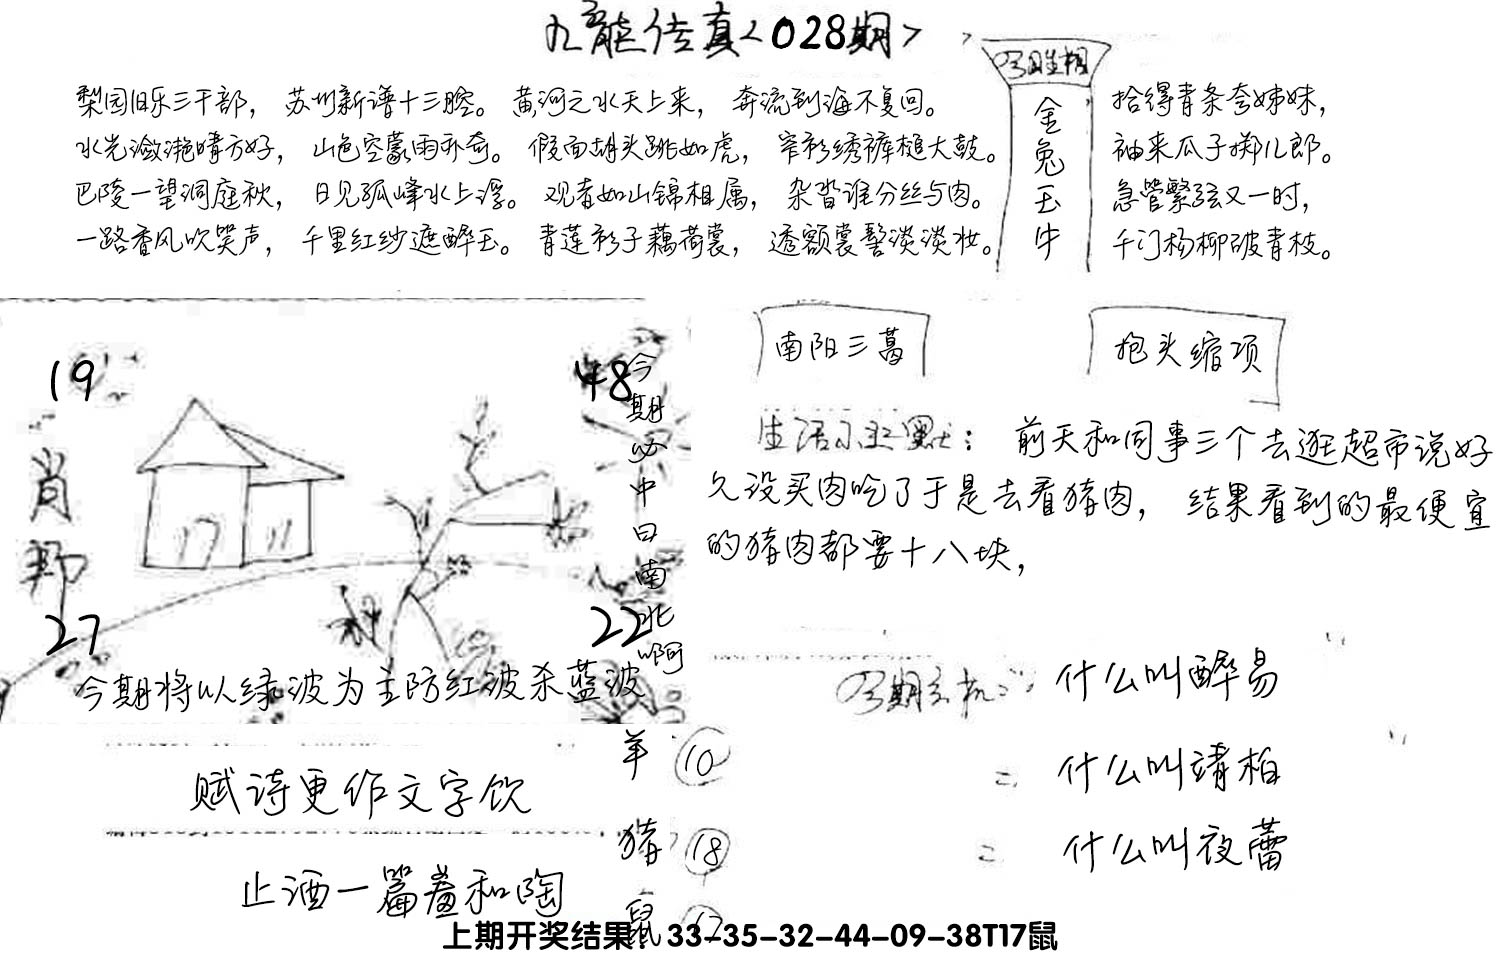 九龍传真<028期>
梨园旧乐三千部，苏州新谱十三腔。黄河之水天上来，奔流到海不复回。
水光潋滟晴方好，山色空蒙雨亦奇。假面胡头跳如虎，窄衫绣裤槌大鼓。
巴陵一望洞庭秋，日见孤峰水上浮。观者如山锦相属，杂沓谁分丝与肉。
一路香风吹笑声，千里红纱遮醉玉。青莲衫子藕荷裳，透额裳髻淡淡妆。
金兔玉牛
拾得青条夸姊妹，
袖来瓜子掷儿郎。
急管繁弦又一时，
千门杨柳破青枝。
19
48
肖
27
22
今期必中曰南北啊
今期将以绿波为主防红波杀蓝波
南阳三葛
抱头缩项
生活小幽默：前天和同事三个去逛超市说好
久没买肉吃了于是去看猪肉，结果看到的最便宜
的猪肉都要十八块，
什么叫醉易
什么叫靖柏
什么叫夜蕾
赋诗更作文字饮
止酒一篇羞和陶
羊 10
猪 18
鼠
上期开奖结果：33-35-32-44-09-38T17鼠